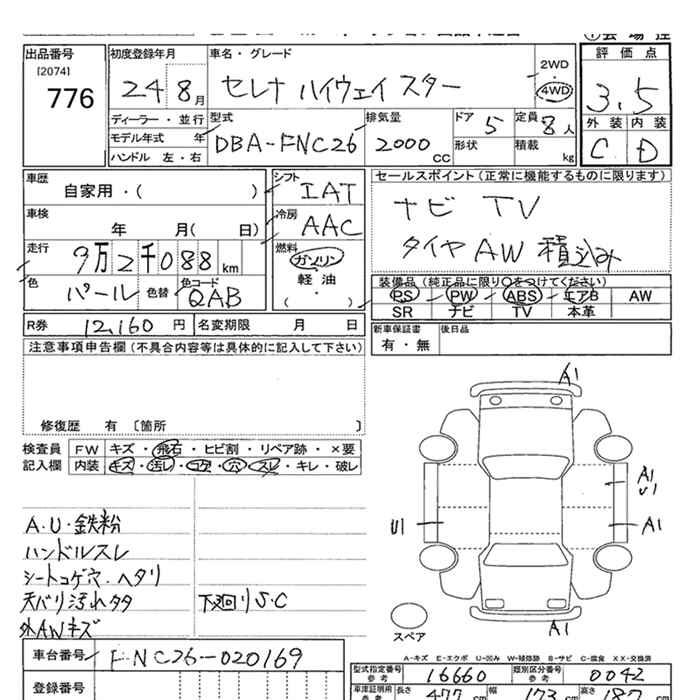 出品番号
[2074]
776
初度登録年月
24 8月
車名・グレード
セレナ ハイウェイスター
2WD
・
4WD
評価点
3.5
外装 内装
C D
ディーラー・並行
モデル年式 年
ハンドル 左・右
型式
DBA-FNC26
排気量
2000 cc
ドア 5
形状
定員 8人
積載 kg
車歴
自家用・( )
シフト IAT
車検
年 月( 日)
冷房 AAC
走行
9万2千088 km
燃料
ガソリン
・
軽油
・
( )
色 パール 色替
色コード QAB
セールスポイント(正常に機能するものに限ります)
ナビ TV
タイヤAW積込み
装備品(純正品に限り○をつけてください)
PS PW ABS エアB AW
SR ナビ TV 本革
R券 12,160 円 名変期限 月 日
新車保証書
有・無
後日品
注意事項申告欄(不具合内容等は具体的に記入して下さい)
修復歴 有 〔箇所 〕
検査員
記入欄
FW キズ・飛石・ヒビ割・リペア跡・×要
内装 キズ・汚レ・コゲ・穴・スレ・キレ・破レ
A.U.鉄粉
ハンドルスレ
シートコゲ穴.ヘタリ
天バリ汚れタタ
外AWキズ
下廻りS.C
A1
A1
U1
U1
A1
A1
スペア
A-キズ E-エクボ U-凹み W-補修跡 B-サビ C-腐食 XX-交換済
車台番号 FNC26-020169
登録番号
型式指定番号
参考
16660
類別区分番号
参考
0042
車庫証明用
参考
長さ 477 cm
幅 173 cm
高さ 187 cm